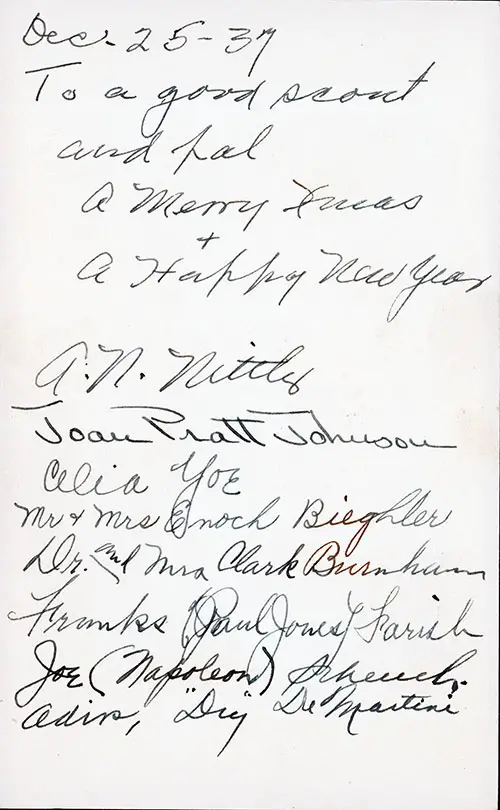 Dec. 25-37
To a good scout
and pal
A Merry Xmas
+
A Happy New Year
A. N. Nittler
Joan Pratt Johnson
Celia Yoe
Mr + Mrs Enoch Bieghler
Dr. and Mrs Clark Burnham
(Paul Jones) Farish
Joe (Napoleon)
"Diy" De Martini